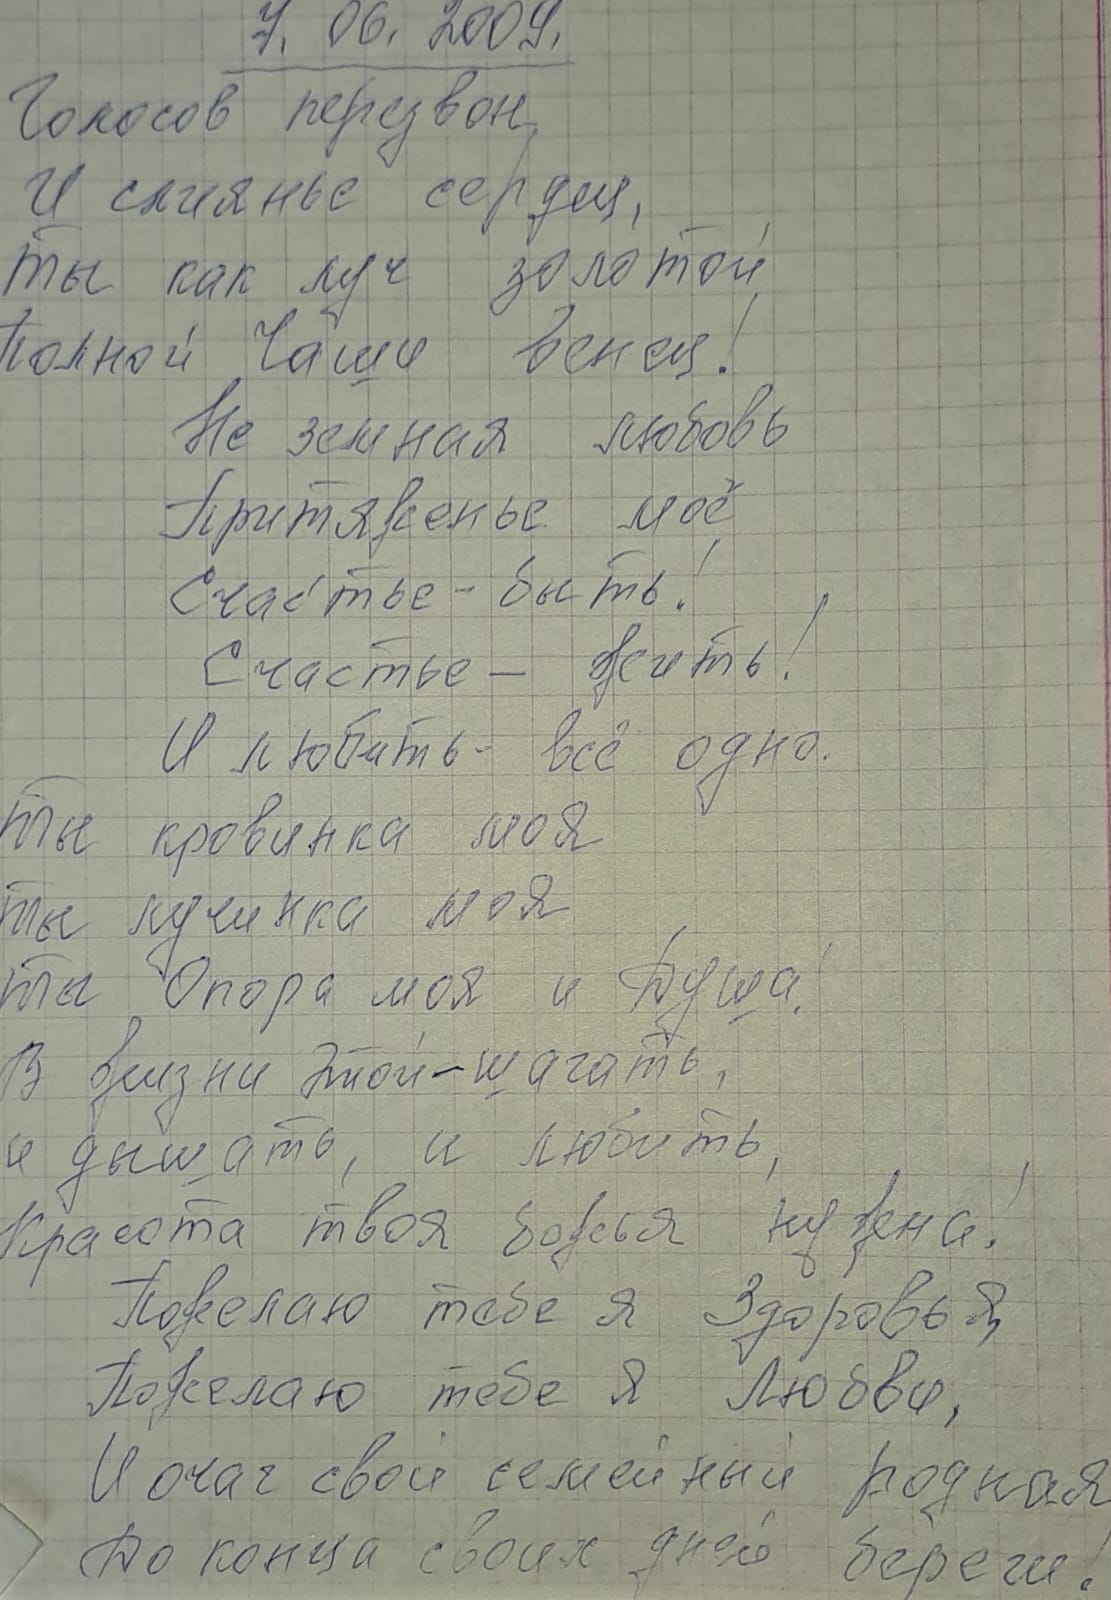 7. 06. 2009.
Голосов перезвон,
И слиянье сердец,
Ты как луч золотой
Полной Чаши венец!
Не земная любовь
Притяженье моё
Счастье - быть!
Счастье - жить!
И любить - всё одно.
Ты кровинка моя
Ты лучинка моя
Ты Опора моя и Душа!
В жизни этой - шагать,
и дышать, и любить,
Красота твоя божья нужна!
Пожелаю тебе я Здоровья,
Пожелаю тебе я Любви,
И очаг свой семейный родная
До конца своих дней береги!